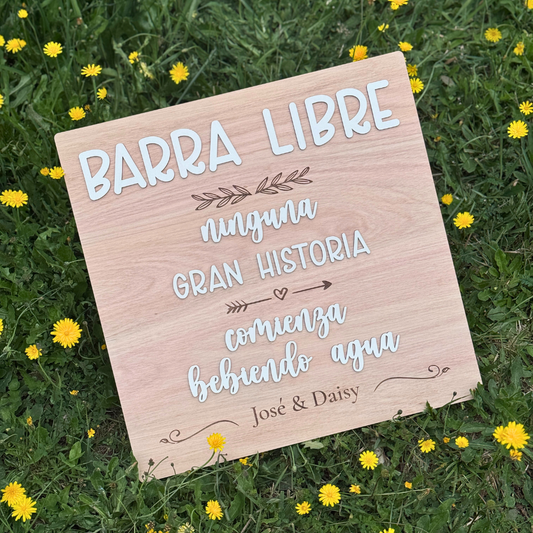 BARRA LIBRE
ninguna
GRAN HISTORIA
comienza
bebiendo agua
José & Daisy